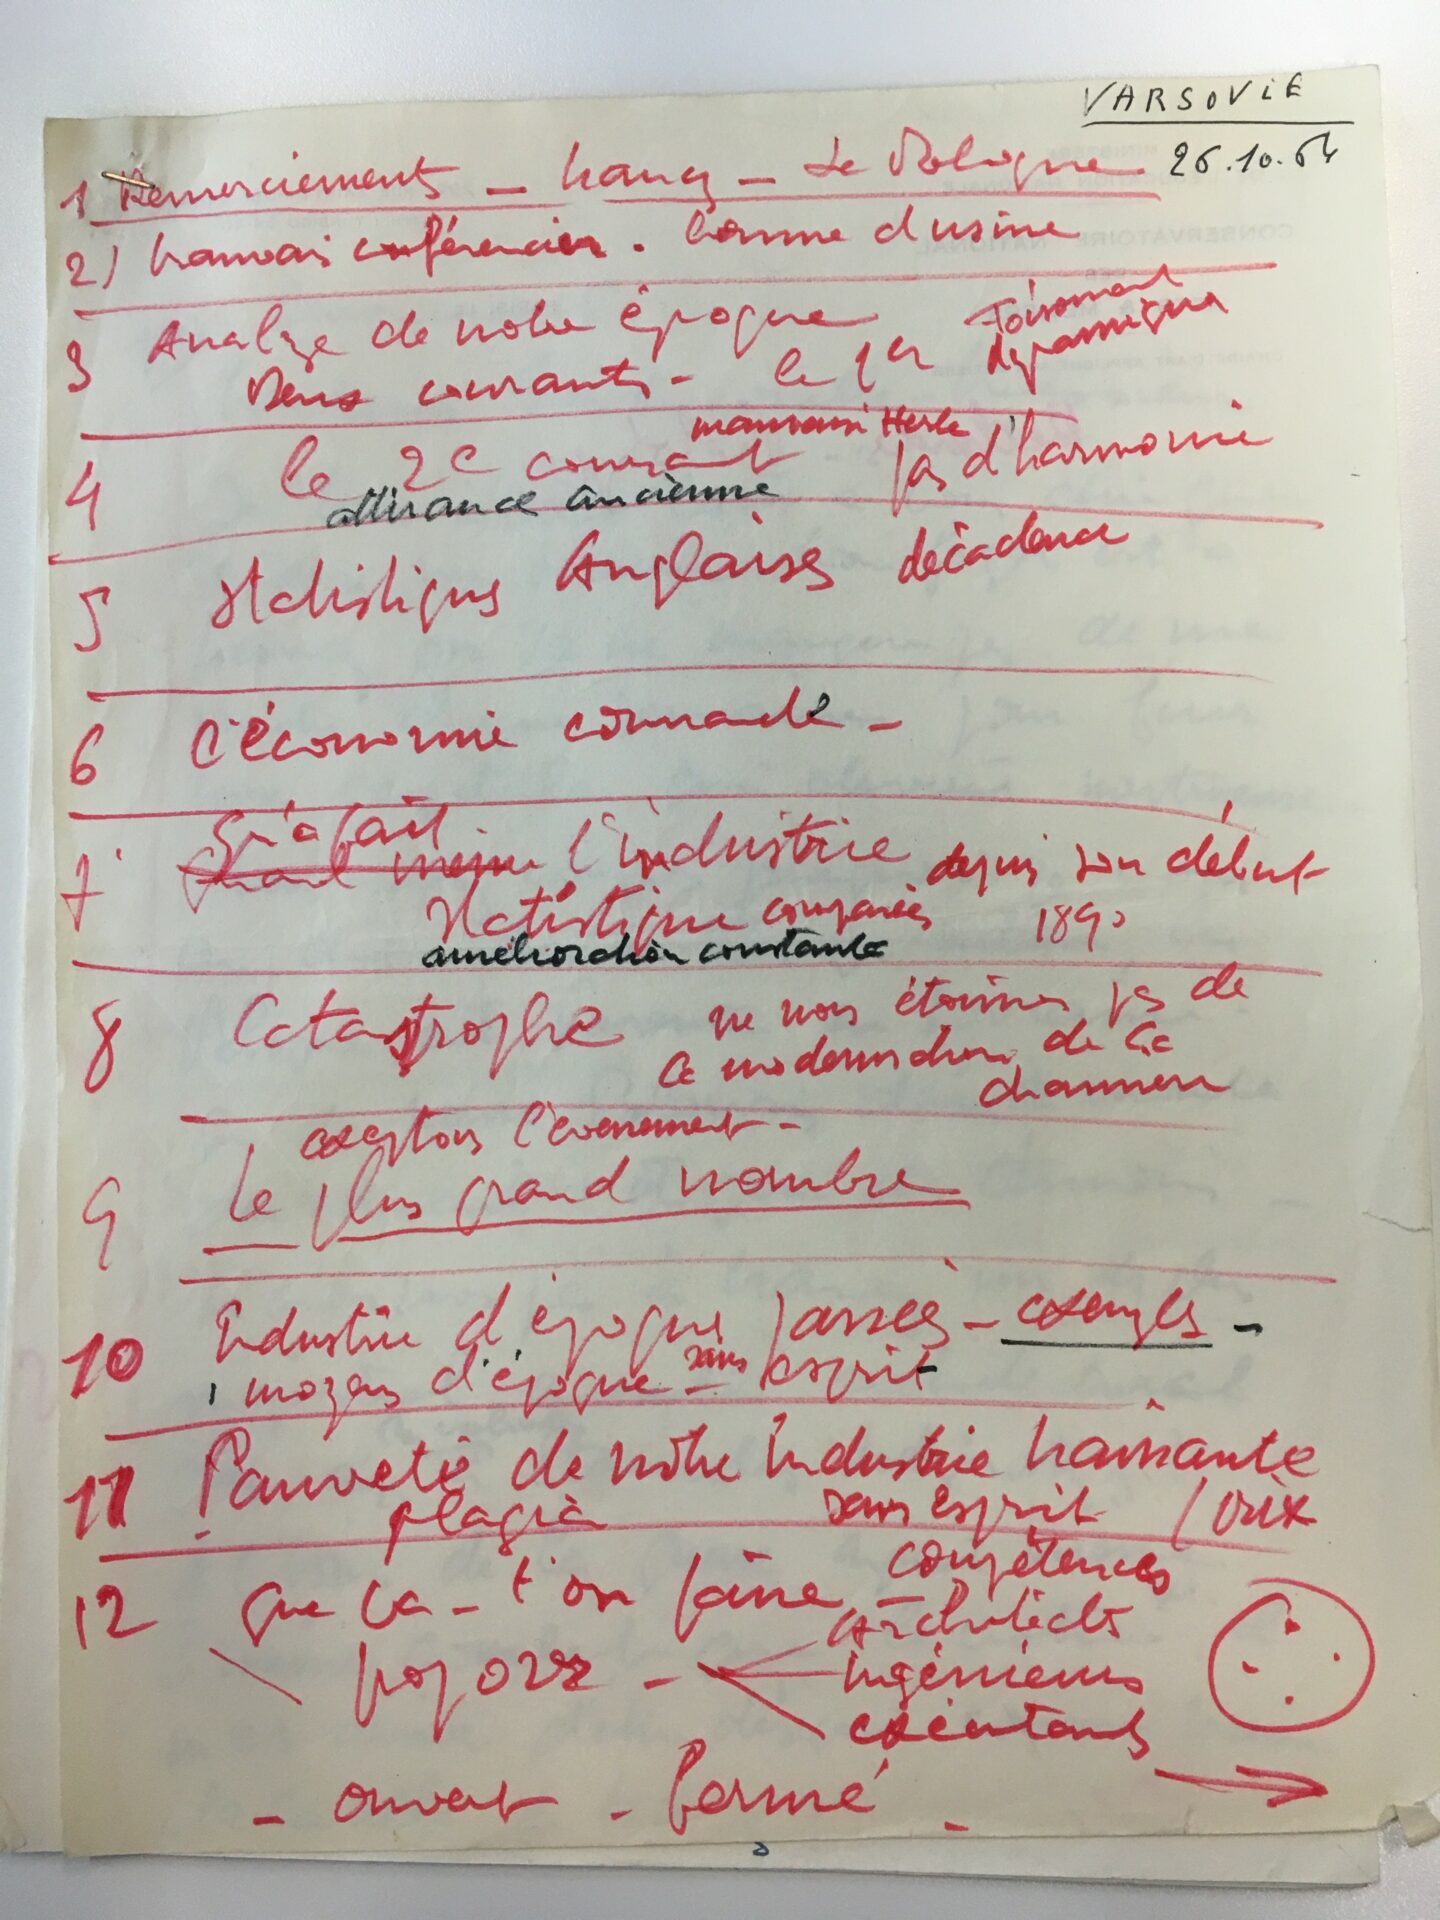 VARSOVIE
26.10.64
1 Remerciements - Nancy - La Pologne
2) mauvais conférencier. homme d'usine
3 Analyse de notre époque foisonnant
Deux courants - le 1er
mauvaise Herbe
4 le 2e courant pas d'harmonie
attirance ancienne
5 Statistiques Anglaises décadence
6 l'économie commande -
qu'a fait
7 l'industrie depuis son début
Statistique comparées 1890
amélioration constante
8 Catastrophe ne nous étonnons pas de
ce modernisme de la
chaumière
acceptons l'évènement -
9 Le plus grand nombre
10 Industrie d'époque passée - exemples -
moyens d'époque - sans esprit
11 Pauveté de nôtre industrie naissante
plagia sans esprit prix
12 que va-t'on faire - compétences
architectes
propose - ingénieurs
exécutants
- ouvert - fermé -